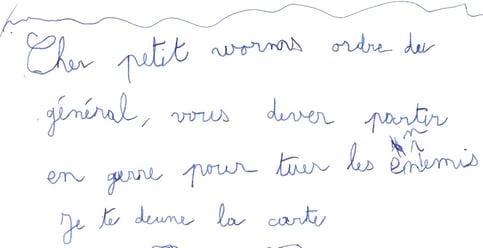 Cher petit worms ordre du
général, vous dever partir
en gerre pour tuer les ennemis
je te deune la carte